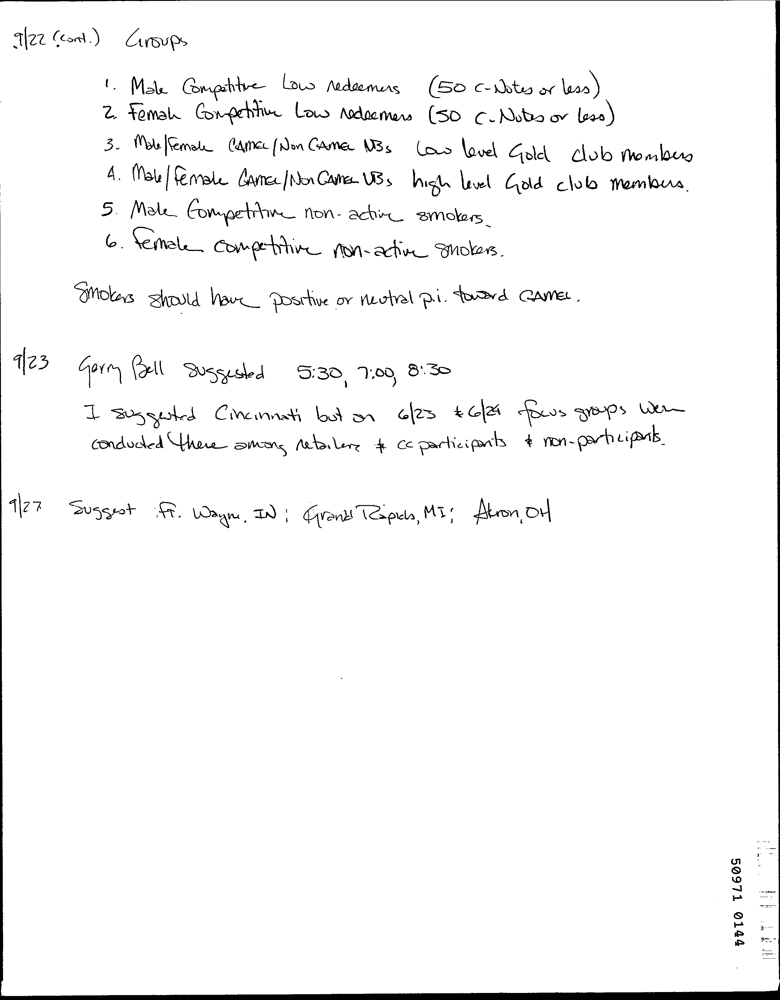 9/22 (cont.) Groups
1. Male Competitive Low redeemers (50 C-Notes or less)
2. Female Competitive Low redeemers (50 C-Notes or less)
3. Male/Female CAMEL/Non CAMEL UBs low level Gold club members
4. Male/Female CAMEL/Non CAMEL UBs high level Gold club members.
5. Male Competitive non-active smokers.
6. Female competitive non-active smokers.
Smokers should have positive or neutral p.i. toward CAMEL.
9/23 Gerry Bell suggested 5:30, 7:00, 8:30
I suggested Cincinnati but on 6/23 & 6/24 focus groups were
conducted there among retailers & cc participants & non-participants.
9/27 Suggest Ft. Wayne, IN; Grand Rapids, MI; Akron, OH
50971 0144